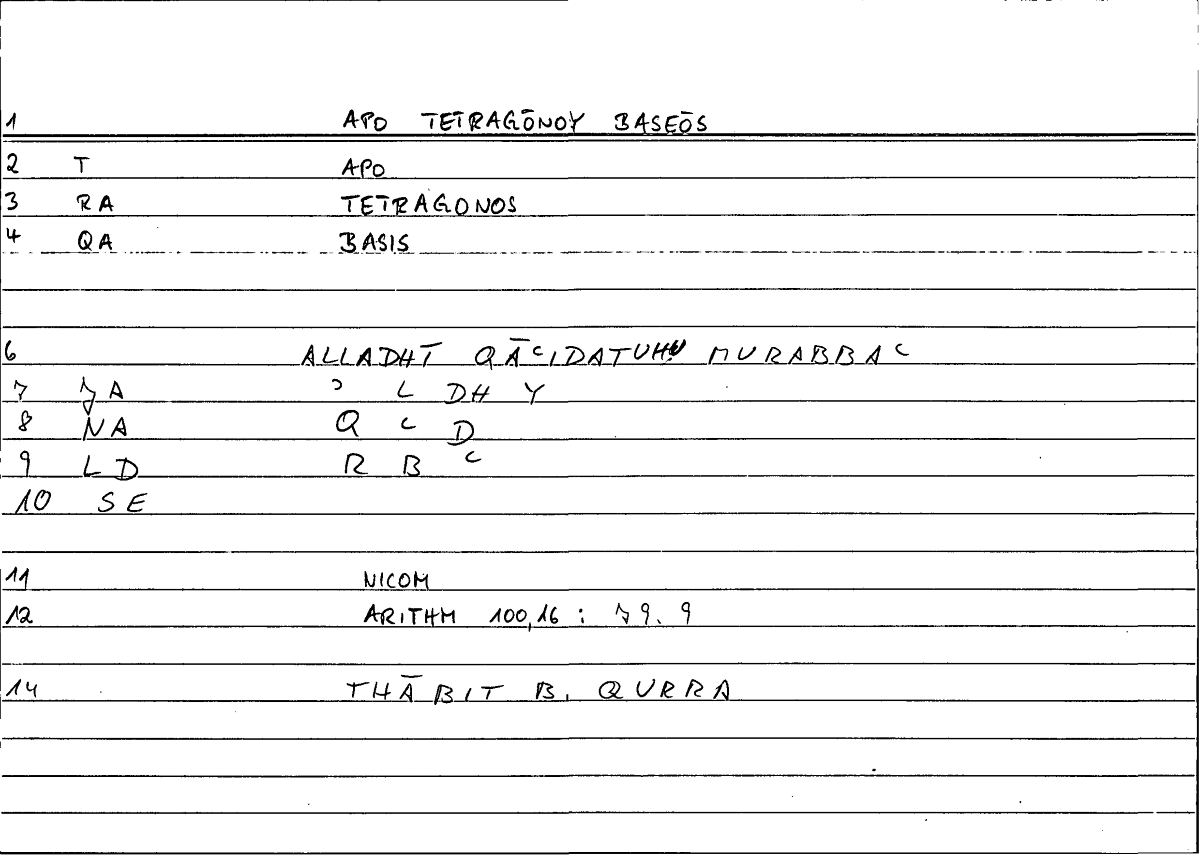 1 APO TETRAGŌNOY BASEŌS
2 T APO
3 RA TETRAGONOS
4 QA BASIS
6 ALLADHĪ QĀʿIDATUHU MURABBAʿ
7 JA ʾ L DH Y
8 NA Q ʿ D
9 LD R B ʿ
10 SE
11 NICOM
12 ARITHM 100,16 : 79.9
14 THĀBIT B. QURRA